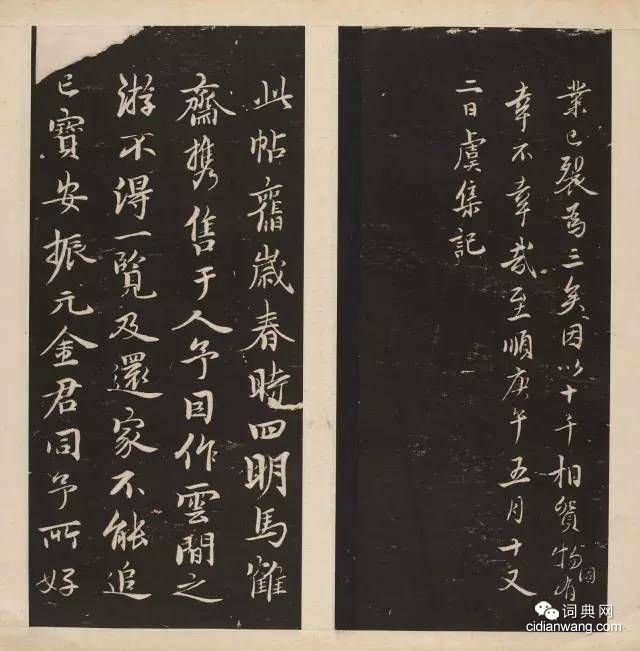 業已裂為三矣因以十千相貿物固有
幸不幸哉至順庚午五月十又
二日虞集記
此帖舊歲春時四明馬寉
齋携售于人予因作雲間之
游不得一覽及還家不能追
已寶安振元金君同予所好
词典网
cidianwang.com